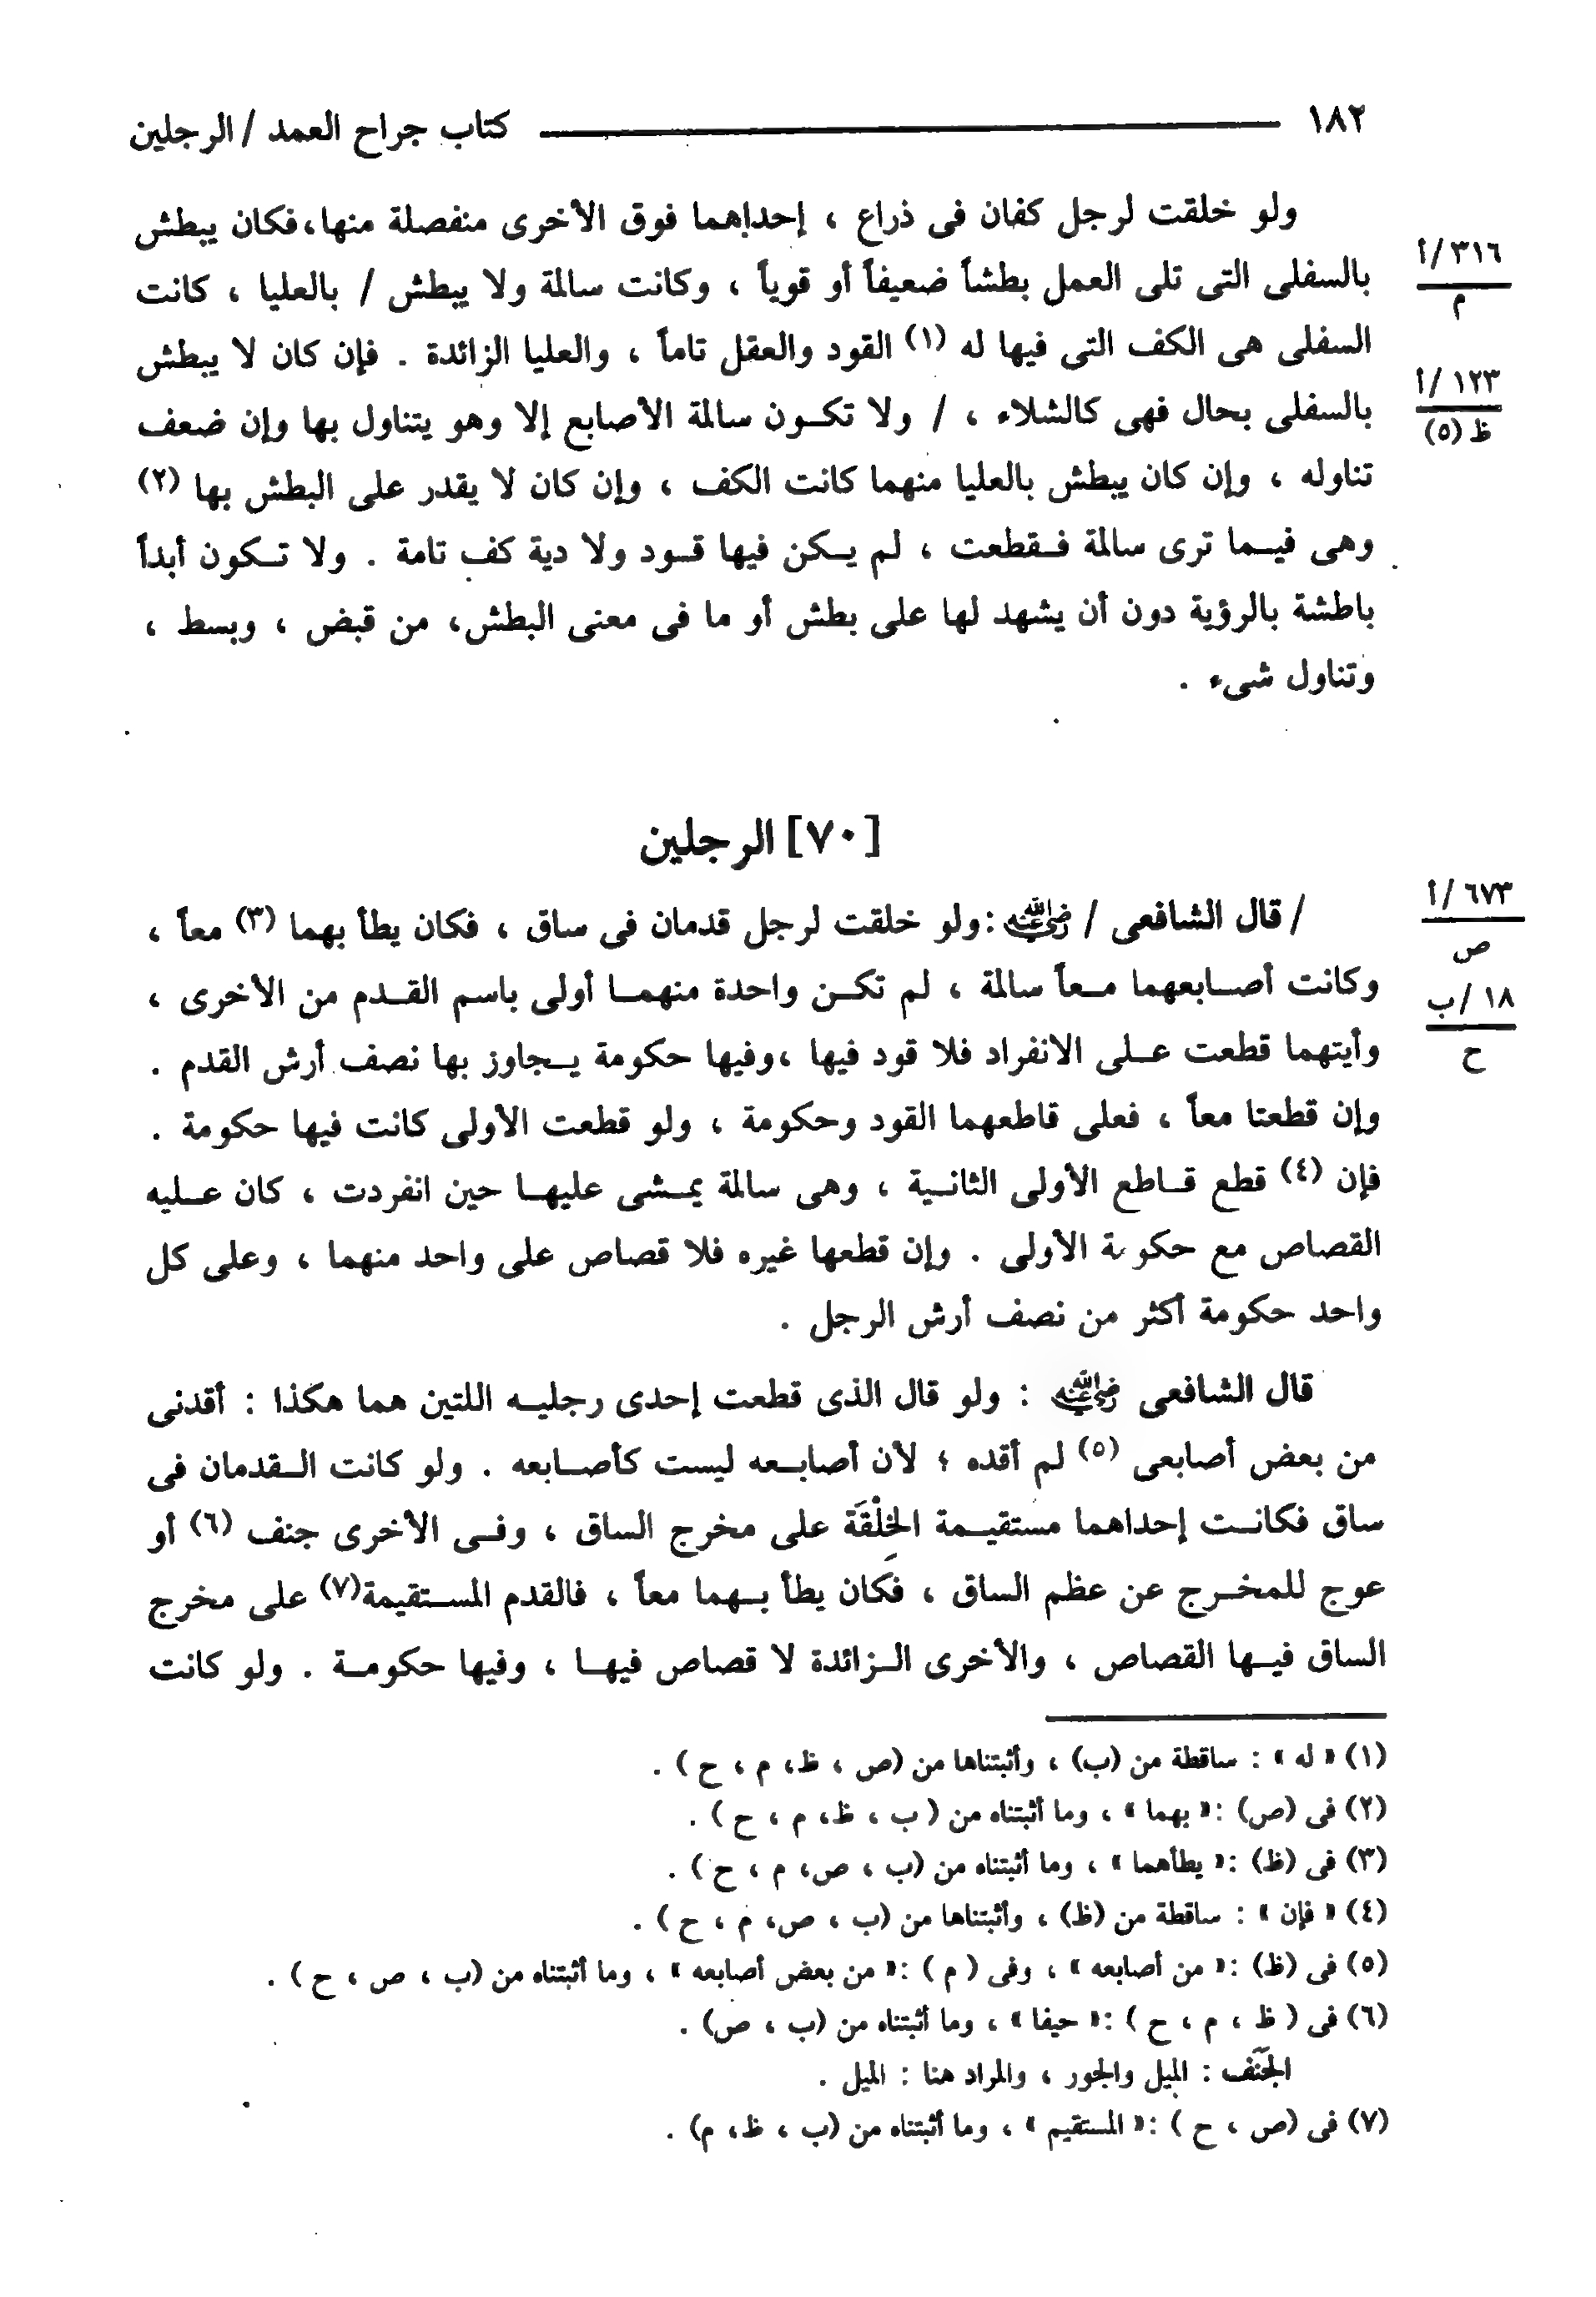 ١٨٢ كتاب جراح العمد / الرجلين
ولو خلقت لرجل كفان فى ذراع ، إحداهما فوق الأخرى منفصلة منها،فكان يبطش
٣١٦/أ
م
بالسفلى التى تلى العمل بطشاً ضعيفاً أو قوياً ، وكانت سالمة ولا يبطش / بالعليا ، كانت
السفلى هى الكف التى فيها له (١) القود والعقل تاماً ، والعليا الزائدة . فإن كان لا يبطش
١٢٣/أ
ظ (٥)
بالسفلى بحال فهى كالشلاء ، / ولا تكون سالمة الأصابع إلا وهو يتناول بها وإن ضعف
تناوله ، وإن كان يبطش بالعليا منهما كانت الكف ، وإن كان لا يقدر على البطش بها (٢)
وهى فيما ترى سالمة فقطعت ، لم يكن فيها قود ولا دية كف تامة . ولا تكون أبداً
باطشة بالرؤية دون أن يشهد لها على بطش أو ما فى معنى البطش، من قبض ، وبسط ،
وتناول شىء .
[٧٠] الرجلين
٦٧٣/أ
ص
/ قال الشافعى / رضي الله عنه :ولو خلقت لرجل قدمان فى ساق ، فكان يطأ بهما (٣) معاً ،
١٨/ب
ح
وكانت أصابعهما معاً سالمة ، لم تكن واحدة منهما أولى باسم القدم من الأخرى ،
وأيتهما قطعت على الانفراد فلا قود فيها ،وفيها حكومة يجاوز بها نصف أرش القدم .
وإن قطعتا معاً ، فعلى قاطعهما القود وحكومة ، ولو قطعت الأولى كانت فيها حكومة .
فإن (٤) قطع قاطع الأولى الثانية ، وهى سالمة يمشى عليها حين انفردت ، كان عليه
القصاص مع حكومة الأولى . وإن قطعها غيره فلا قصاص على واحد منهما ، وعلى كل
واحد حكومة أكثر من نصف أرش الرجل .
قال الشافعى رضي الله عنه : ولو قال الذى قطعت إحدى رجليه اللتين هما هكذا : أقدنى
من بعض أصابعى (٥) لم أقده ؛ لأن أصابعه ليست كأصابعه . ولو كانت القدمان فى
ساق فكانت إحداهما مستقيمة الخلْقَة على مخرج الساق ، وفى الأخرى جنف (٦) أو
عوج للمخرج عن عظم الساق ، فكان يطأ بهما معاً ، فالقدم المستقيمة(٧) على مخرج
الساق فيها القصاص ، والأخرى الزائدة لا قصاص فيها ، وفيها حكومة . ولو كانت
(١) « له » : ساقطة من (ب) ، وأثبتناها من (ص ، ظ، م ، ح ) .
(٢) فى (ص) :« بهما » ، وما أثبتناه من ( ب ، ظ، م ، ح ) .
(٣) فى (ظ) :« يطأهما » ، وما أثبتناه من (ب ، ص، م ، ح ) .
(٤) « فإن » : ساقطة من (ظ) ، وأثبتناها من (ب ، ص، م ، ح ) .
(٥) فى (ظ) :« من أصابعه » ، وفى ( م ) :« من بعض أصابعه » ، وما أثبتناه من (ب ، ص ، ح ) .
(٦) فى ( ظ ، م ، ح ) :« حيفا » ، وما أثبتناه من (ب ، ص) .
الجَنَف : الميل والجور ، والمراد هنا : الميل .
(٧) فى (ص ، ح ) :« المستقيم » ، وما أثبتناه من (ب ، ظ، م) .